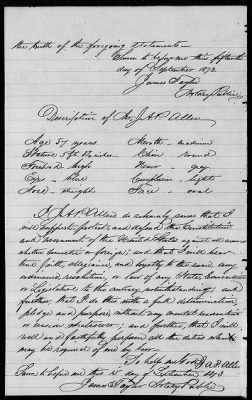 the truth of the foregoing statements.
Sworn to before me this fifteenth
day of September 1873.
James Taylor
Notary Public
Description of Mr J.A.P. Allen
Age 57 years Mouth - medium
Stature 5 ft Chin - round
Forehead high Hair - gray
Eyes - blue Complexion light
Nose - straight Face - oval
I J.A.P. Allen do solemnly swear that I
will support, protect, and defend the Constitution
and Government of the United States against all enemies
whether domestic or foreign; and that I will bear
true faith, allegiance, and loyalty to the same, any
ordinance, resolution, or law of any State Convention
or Legislature to the contrary notwithstanding; and
further, that I do this with a full determination,
pledge and purpose, without any mental reservation
or evasion whatsoever; and further, that I will
well and faithfully perform all the duties which
may be required of me by law.
So help me God J.A.P. Allen
Sworn to before me this 15 day of September 1873.
James Taylor Notary Public